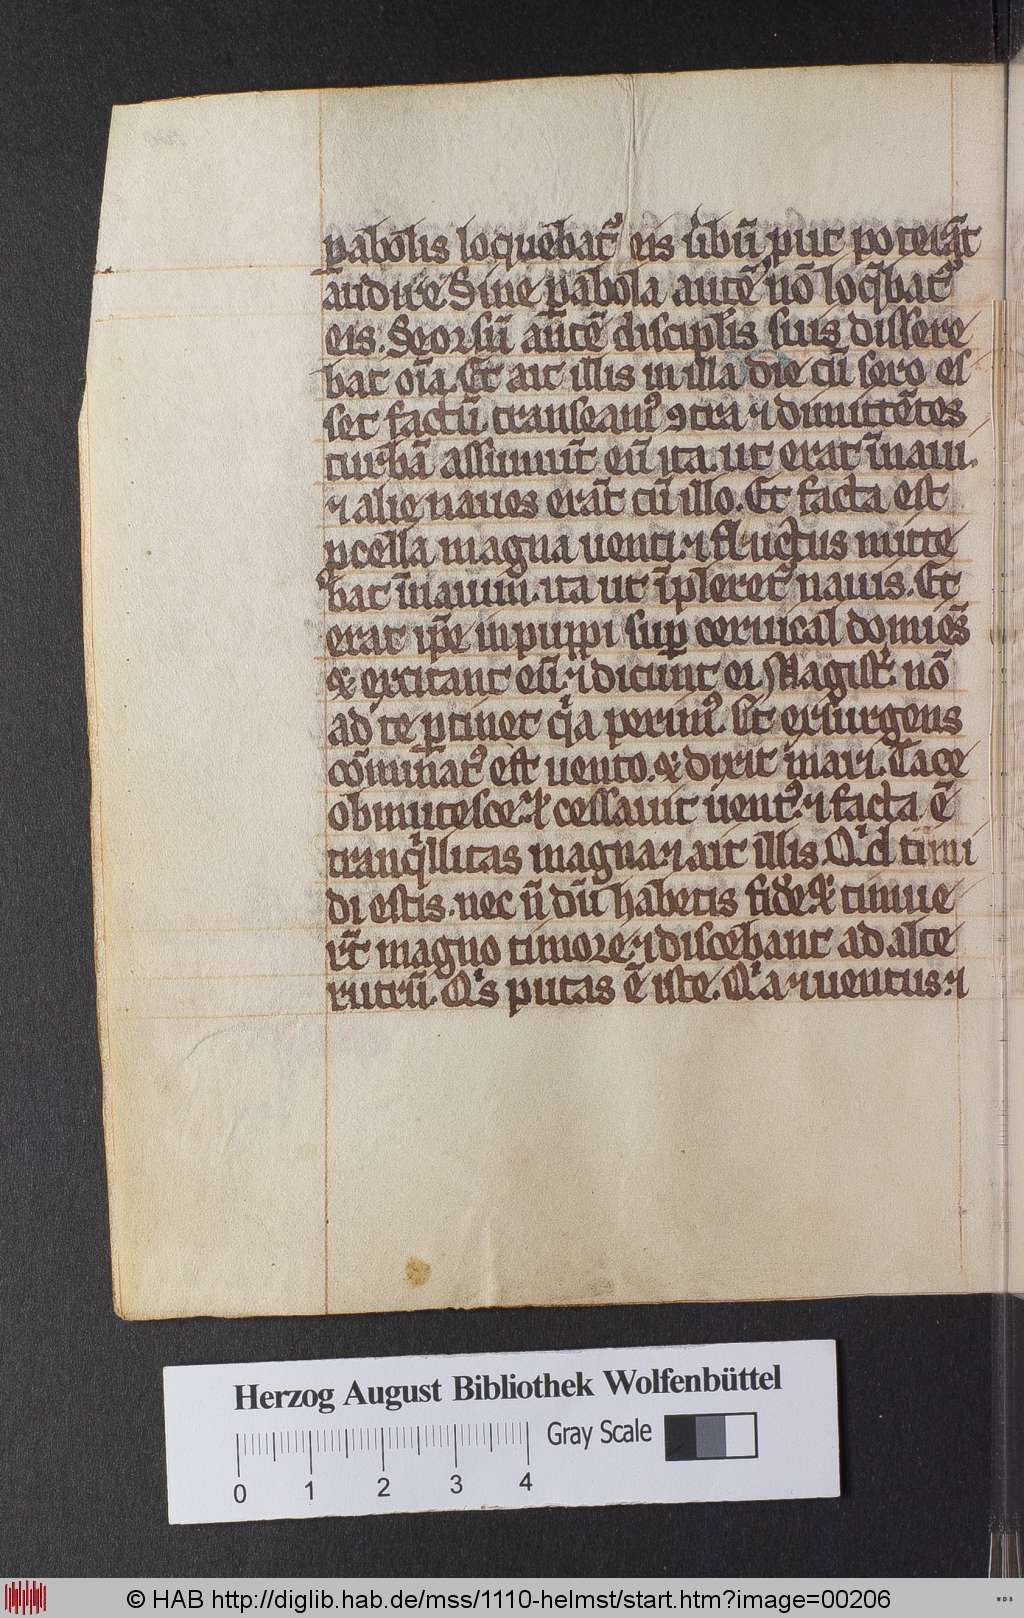 pabolis loquebat᷒ eis ūbū put poterāt
audire. Sine pabola autē nō loq̄bat᷒
eis. Seorsū autē discipl̄is suis dissere
bat oīa. Et ait illis in illa die cū sero es
set factū. transeam᷒ ꝯtra ⁊ dimittētes
turbā assumūt eū ita. ut erat ī naui.
⁊ alie naues erāt cū illo. Et facta est
pcella magna uenti. ⁊ fluctus mitte
bat ī nauim. ita ut īpleret᷒ nauis. Et
erat ip̄e in puppi sup ceruical domiēs
& excitant eū. ⁊ dicunt ei Magist᷒. nō
ad te ptinet qͥa perim᷒. Et exsurgens
cōminat᷒ est uento. & dixit mari. Tace
obmutesce. & cessauit uent᷒. ⁊ facta ē
tranqͥllitas magna. ⁊ ait illis. Qͥd timi
di estis. nec n̄ dū habetis fidē. & timue
rt̄ magno timore. ⁊ discebant ad alte
rutrū. Qͥs putas ē iste. Qͥa ⁊ uentus. ⁊
Herzog August Bibliothek Wolfenbüttel
Gray Scale
0 1 2 3 4
© HAB http://diglib.hab.de/mss/1110-helmst/start.htm?image=00206